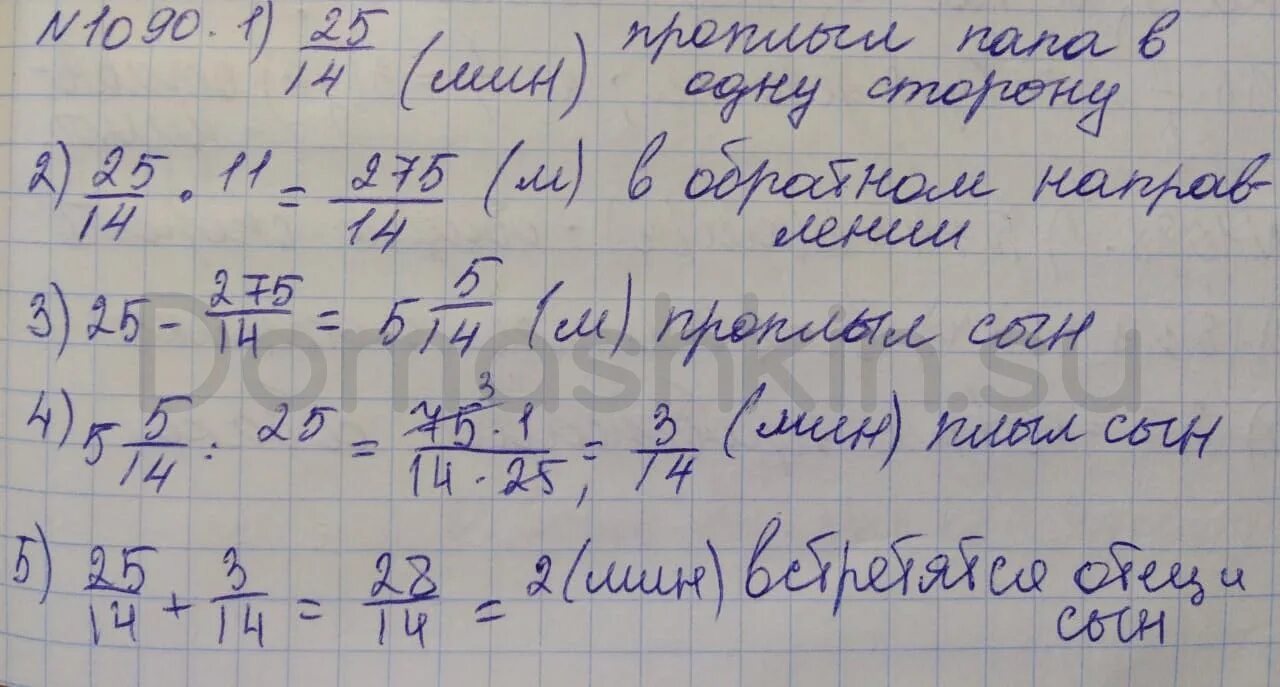 N1090. 1) 25/14 (мин) проплыл папа в
одну сторону
2) 25/14 · 11 = 275/14 (м) в обратном направ-
лении
3) 25 - 275/14 = 5 5/14 (м) проплыл сын
4) 5 5/14 : 25 = 75 3 · 1/14 · 25, = 3/14 (мин) плыл сын
5) 25/14 + 3/14 = 28/14 = 2 (мин) встретятся отец и
сын
Domashkin.su